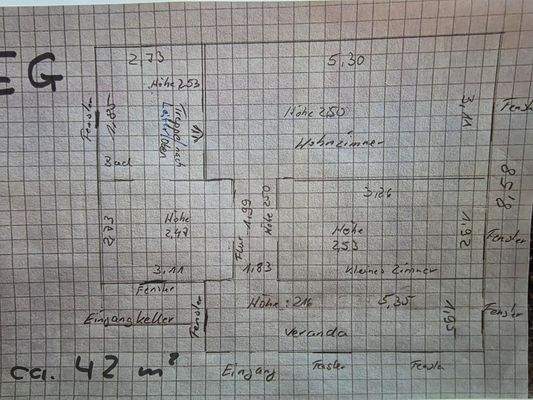 EG
2,73
5,30
Höhe 2,53
Fenster
1,85
Treppe nach
Höhe 2,50
3,11
Fenster
Bad
Wohnzimmer
8,58
3,26
2,73
Höhe
2,47
Flur 1,99
Höhe 2,50
Höhe
2,53
1,92
Fenster
3,11
1,83
kleines Zimmer
Fenster
Eingangkeller
Fenster
Höhe: 2,16
5,35
1,95
Fenster
Veranda
ca. 42 m²
Eingang
Fenster
Fenster